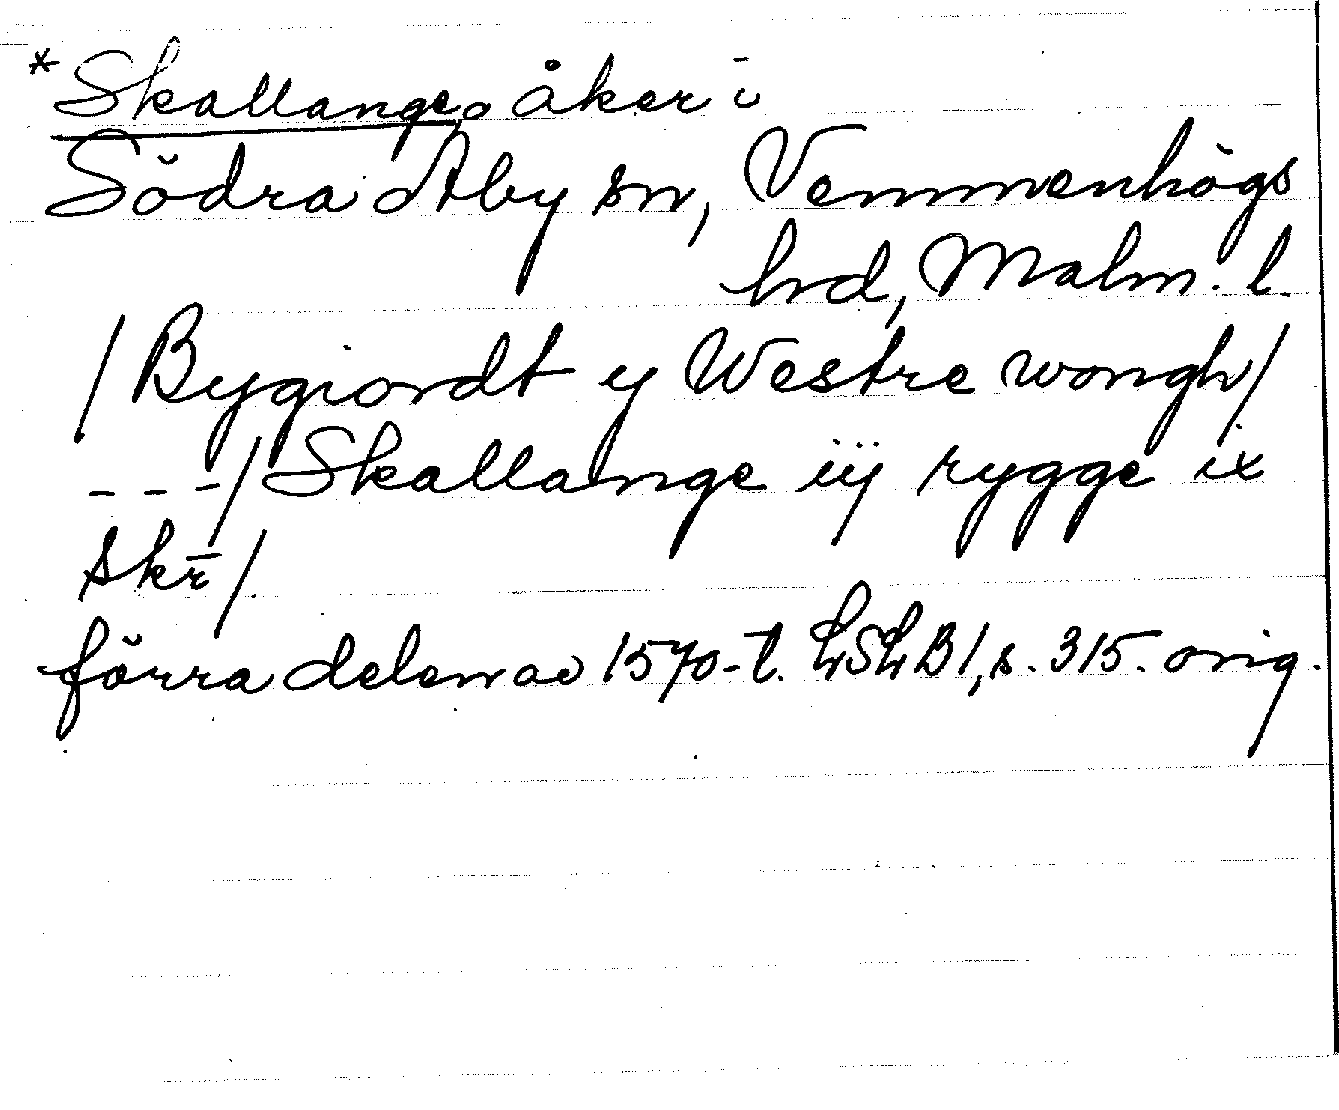 *Skallange, åker i
Södra Åby sn, Vemmenhögs
hd, Malm. l.
/Bygiordt y Westre wongh/
---/Skallange iij rygge ix
skr̄/.
förra delen av 1570-t. LSLB1, s. 315. orig.